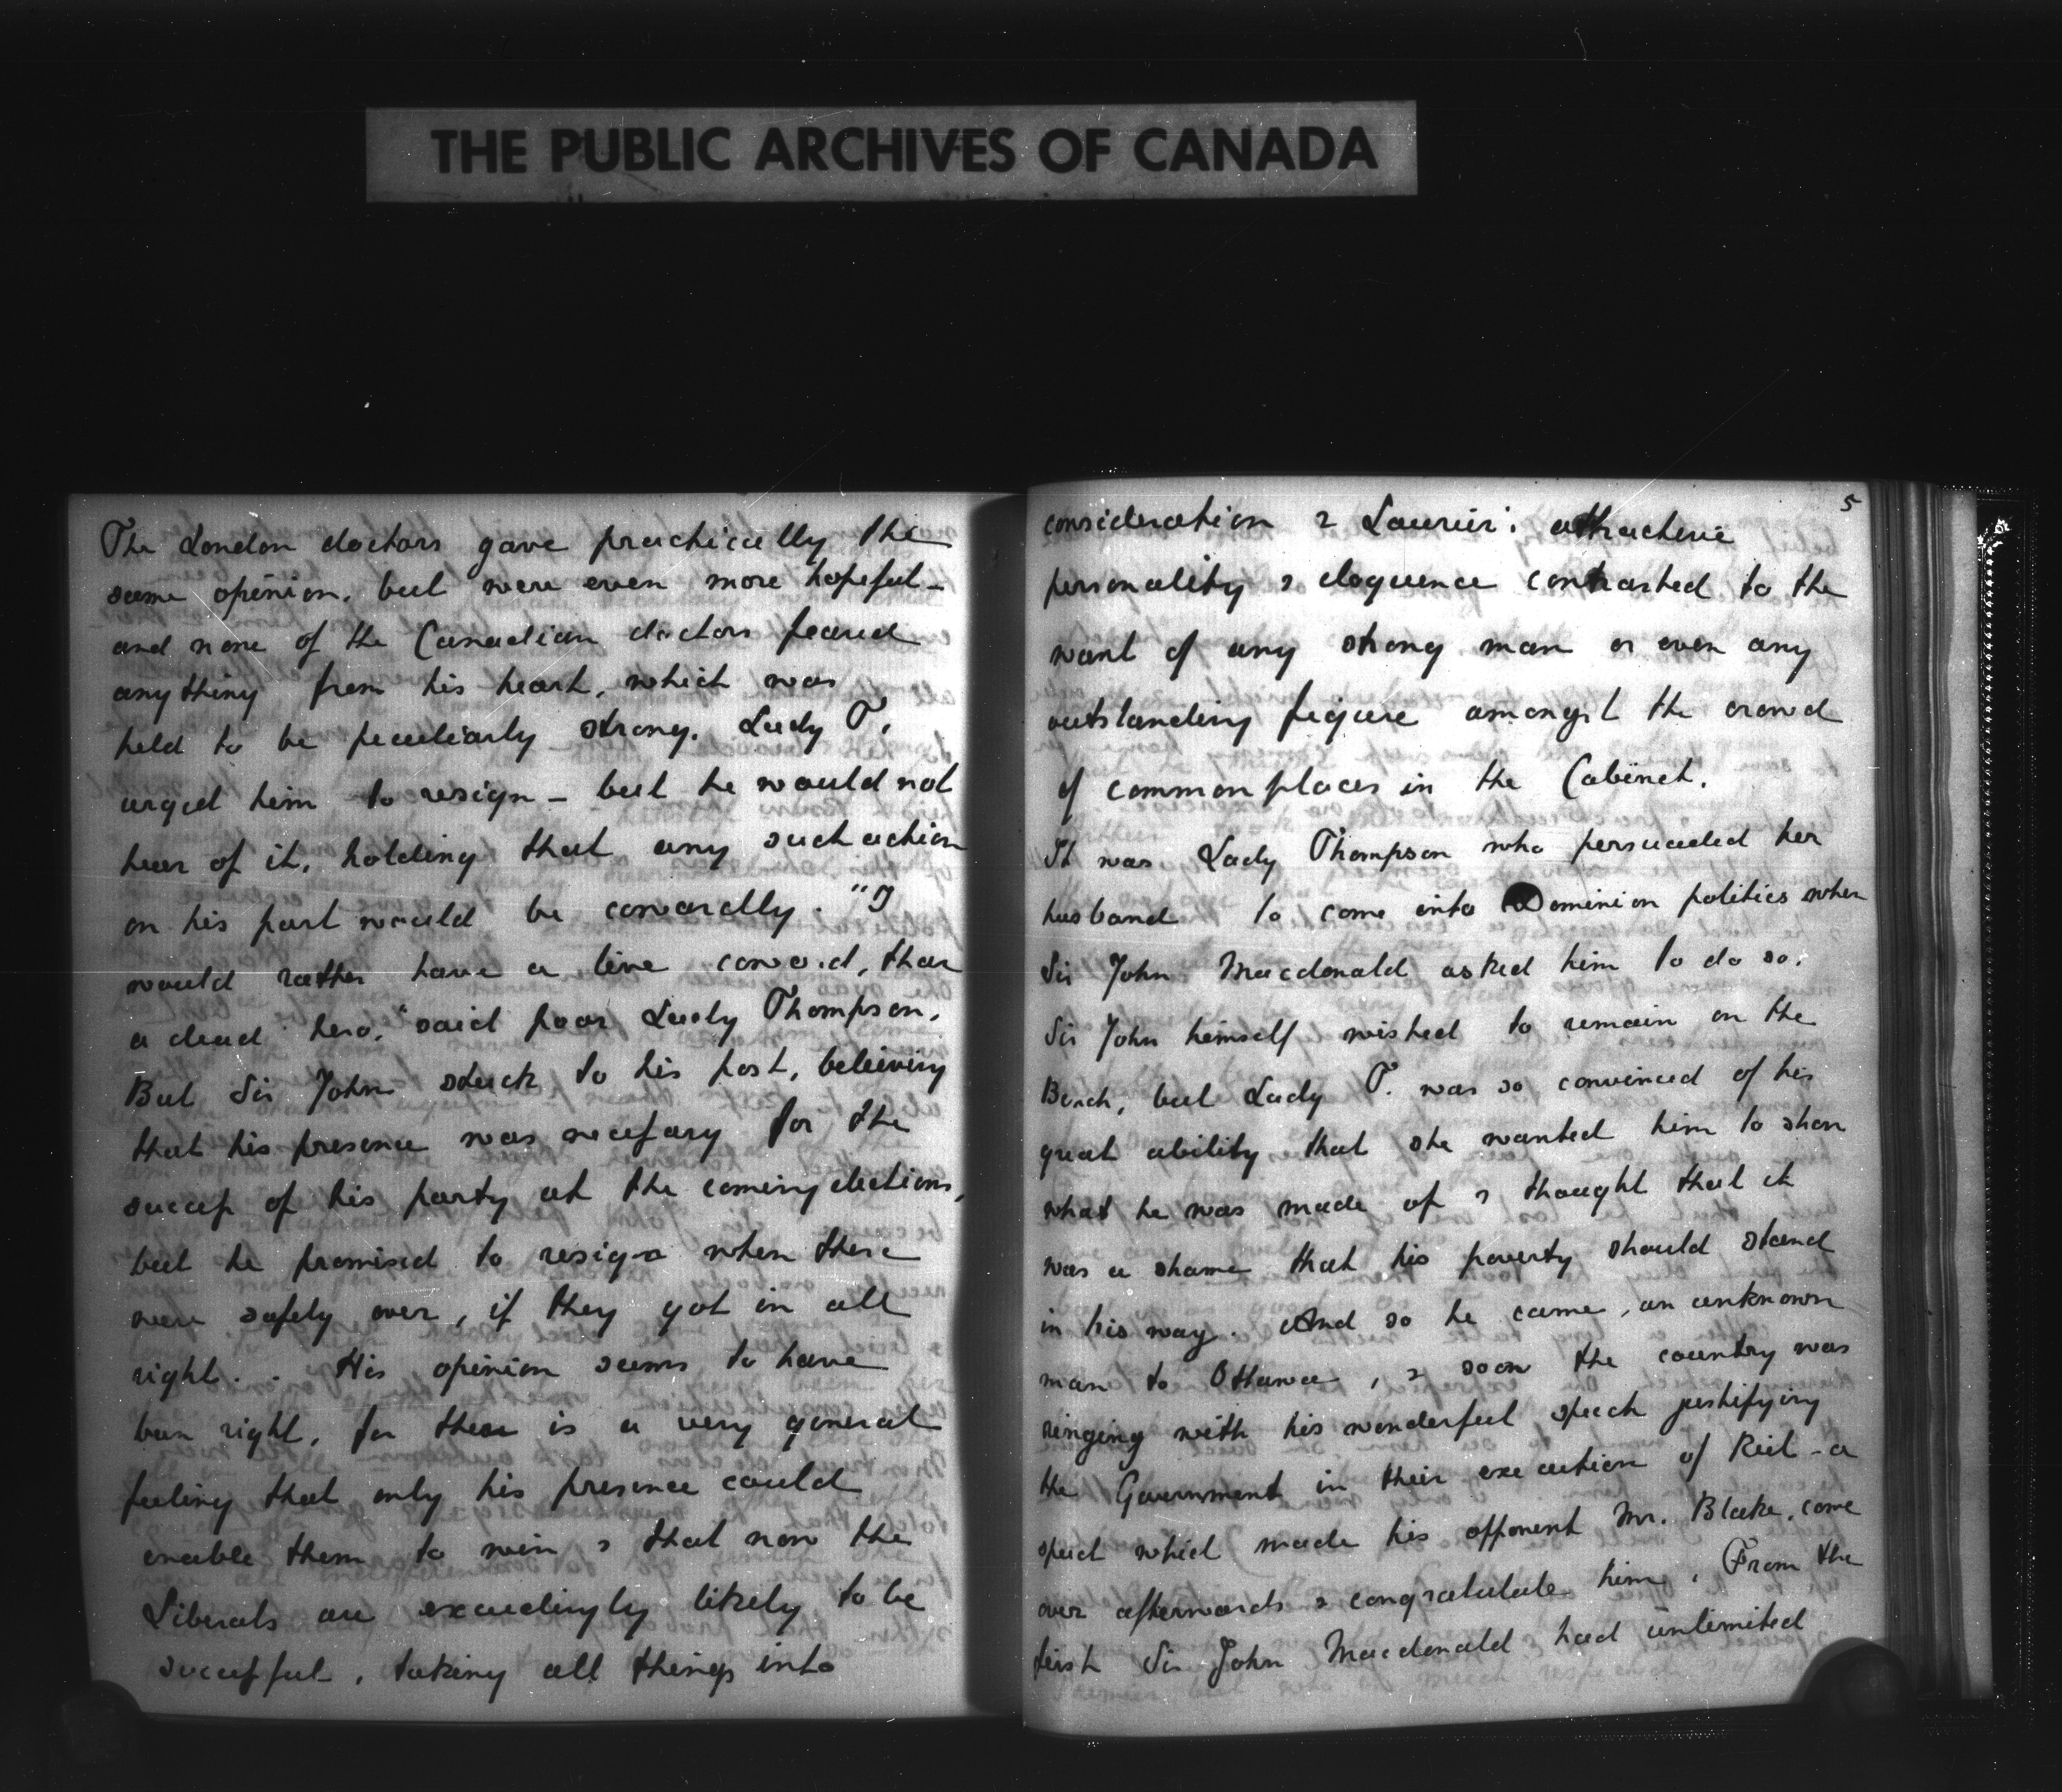 THE PUBLIC ARCHIVES OF CANADA
The London doctors gave practically the
same opinion, but were even more hopeful -
and none of the Canadian doctors feared
anything from his heart, which was
held to be peculiarly strong. Lady T.
urged him to resign - but he would not
hear of it, holding that any such action
on his part would be cowardly. "I
would rather have a live coward, than
a dead hero," said poor Lady Thompson.
But Sir John stuck to his post, believing
that his presence was necessary for the
success of his party at the coming elections,
but he promised to resign when these
were safely over, if they got in all
right. . His opinion seems to have
been right, for there is a very general
feeling that only his presence could
enable them to win & that now the
Liberals are exceedingly likely to be
successful, taking all things into
5
consideration & Laurier's attractive
personality & eloquence contrasted to the
want of any strong man or even any
outstanding figure amongst the crowd
of commonplaces in the Cabinet.
It was Lady Thompson who persuaded her
husband to come into Dominion politics when
Sir John Macdonald asked him to do so.
Sir John himself wished to remain on the
Bench, but Lady T. was so convinced of his
great ability that she wanted him to show
what he was made of & thought that it
was a shame that his poverty should stand
in his way. And so he came, an unknown
man to Ottawa, & soon the country was
ringing with his wonderful speech justifying
the Government in their execution of Riel - a
speech which made his opponent Mr. Blake, come
over afterwards & congratulate him. From the
first Sir John Macdonald had unlimited